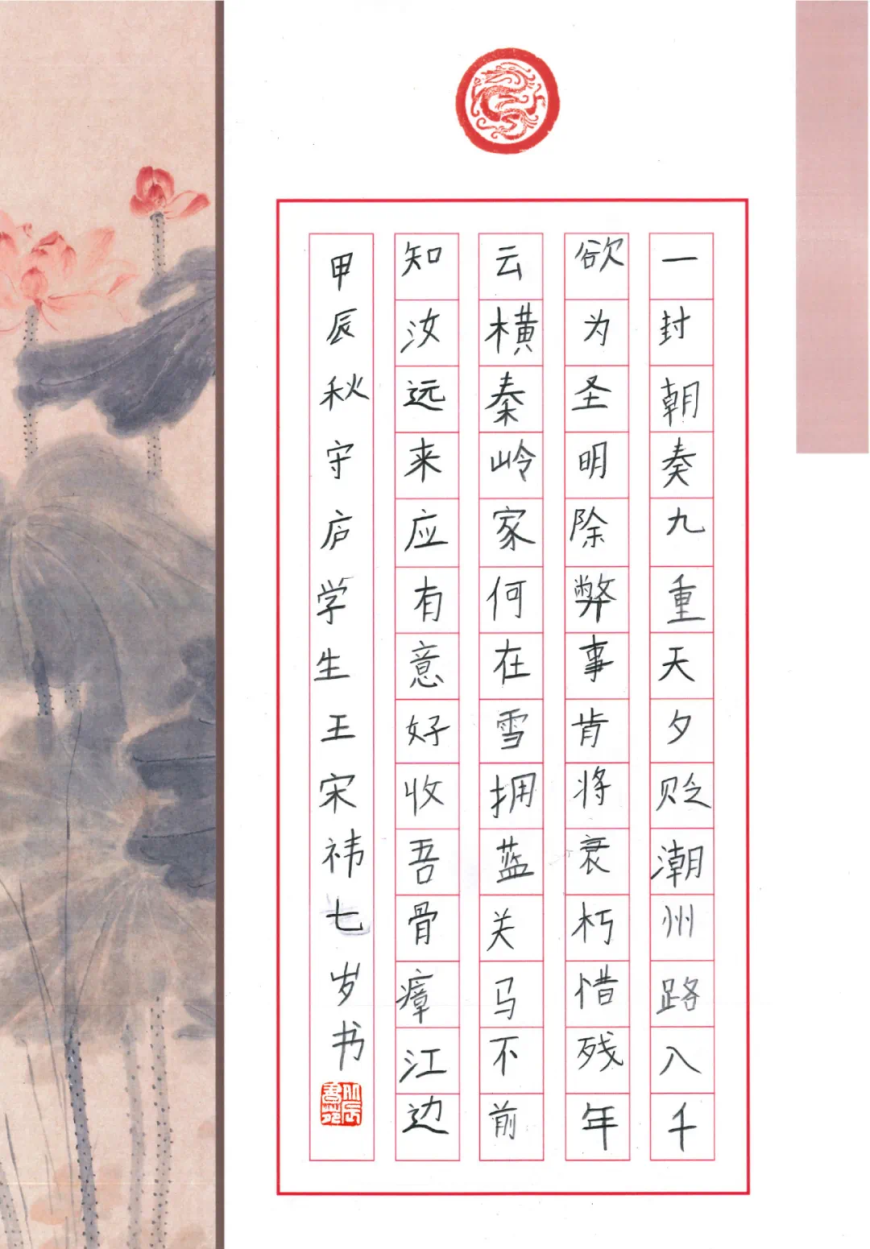 一封朝奏九重天夕贬潮州路八千
欲为圣明除弊事肯将衰朽惜残年
云横秦岭家何在雪拥蓝关马不前
知汝远来应有意好收吾骨瘴江边
甲辰秋守庐学生王宋祎七岁书